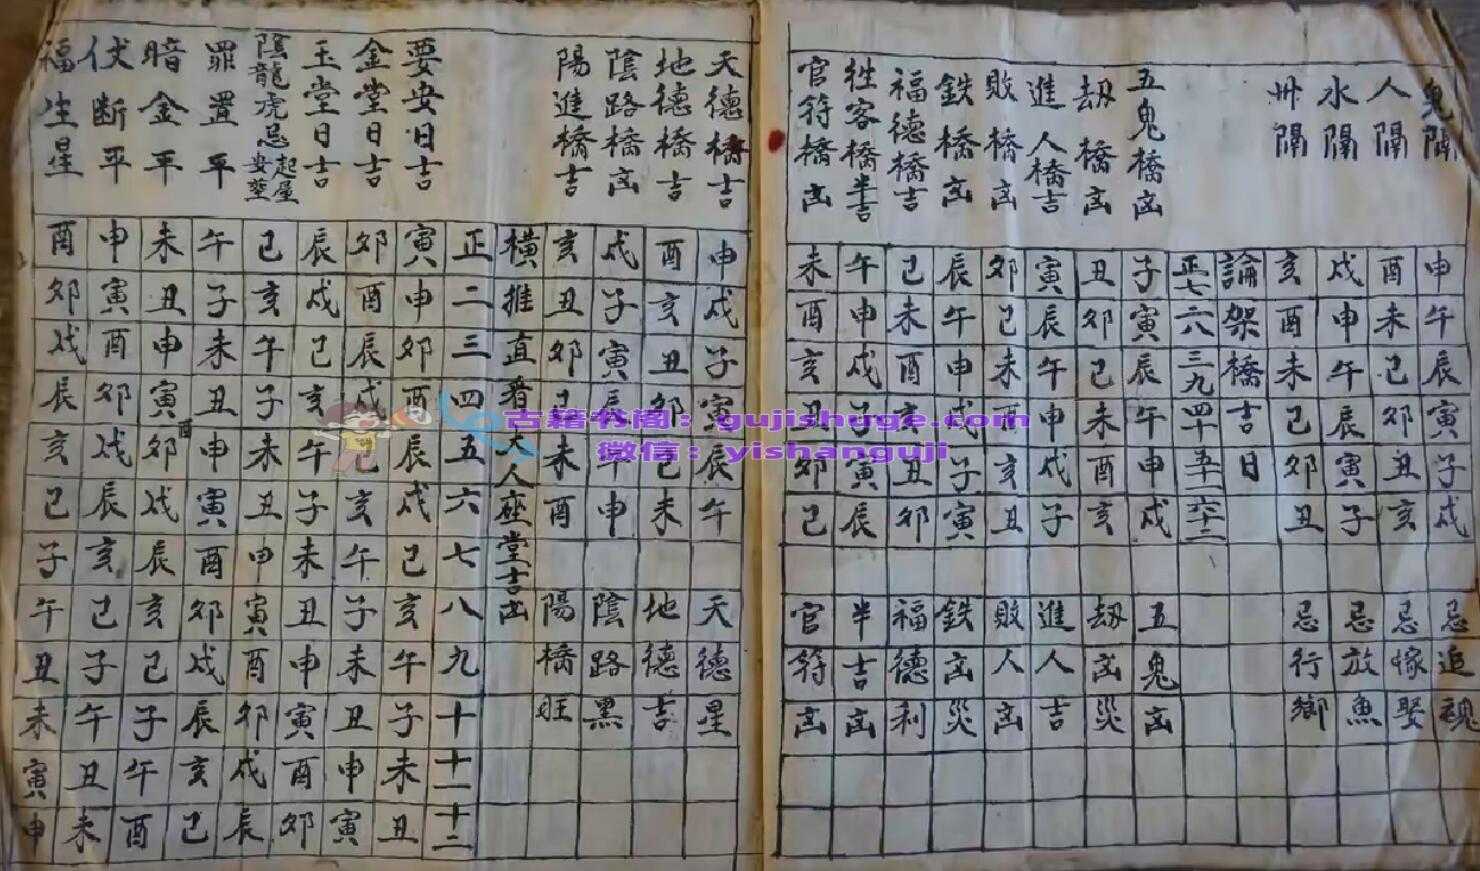 鬼隔 申午辰寅子戌 忌追魂
人隔 酉未巳卯丑亥 忌嫁娶
水隔 戌申午辰寅子 忌放魚
州隔 亥酉未巳卯丑 忌行鄉
論架橋吉日
正七 二八 三九 四十 五十一 六十二
五鬼橋凶 子寅辰午申戌 五鬼凶
劫橋凶 丑卯巳未酉亥 劫凶災
進人橋吉 寅辰午申戌子 進人吉
敗橋凶 卯巳未酉亥丑 敗人凶
鉄橋凶 辰午申戌子寅 鉄凶災
福德橋吉 巳未酉亥丑卯 福德利
徃客橋半吉 午申戌子寅辰 半吉凶
官符橋凶 未酉亥丑卯巳 官符凶
天德橋吉 申戌子寅辰午 天德星
地德橋吉 酉亥丑卯巳未 地德吉
陰路橋凶 戌子寅辰午申 陰路黑
陽進橋吉 亥丑卯巳未酉 陽橋旺
橫推直看夫人座堂吉凶
正二三四五六七八九十十一十二
要安日吉 寅申卯酉辰戌巳亥午子未丑
金堂日吉 卯酉辰戌巳亥午子未丑申寅
玉堂日吉 辰戌巳亥午子未丑申寅酉卯
陰龍虎忌 起屋安葬 巳亥午子未丑申寅酉卯戌辰
罪置平 午子未丑申寅酉卯戌辰亥巳
暗金平 未丑申寅酉卯戌辰亥巳子午酉
伏断平 申寅酉卯戌辰亥巳子午丑未
福生星 酉卯戌辰亥巳子午丑未寅申
古籍书阁：gujishuge.com
微信：yishanguji